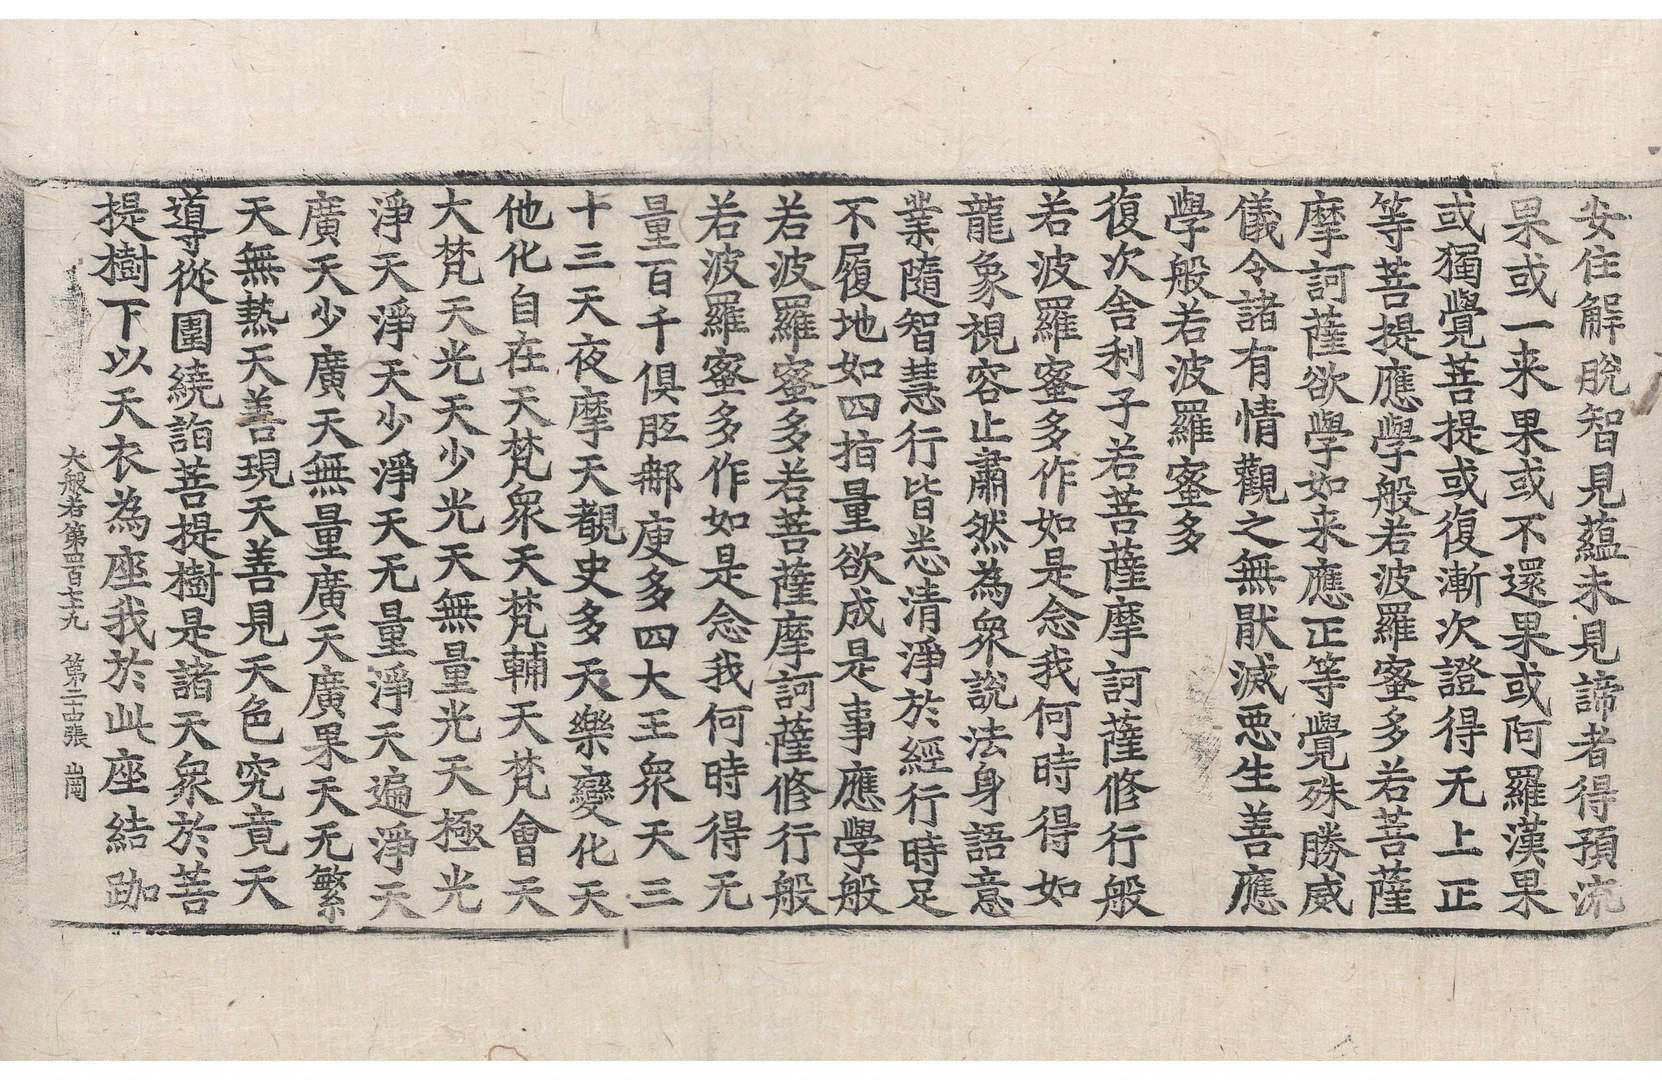 安住解脫智見蘊未見諦者得預流
果或一来果或不還果或阿羅漢果
或獨覺菩提或復漸次證得无上正
等菩提應學般若波羅蜜多若菩薩
摩訶薩欲學如来應正等覺殊勝威
儀令諸有情觀之無猒滅惡生善應
學般若波羅蜜多
復次舍利子若菩薩摩訶薩修行般
若波羅蜜多作如是念我何時得如
龍象視容止肅然為衆說法身語意
業隨智慧行皆悉清淨於經行時足
不履地如四指量欲成是事應學般
若波羅蜜多若菩薩摩訶薩修行般
若波羅蜜多作如是念我何時得无
量百千俱胝那庾多四大王衆天三
十三天夜摩天覩史多天樂變化天
他化自在天梵衆天梵輔天梵會天
大梵天光天少光天無量光天極光
淨天淨天少淨天无量淨天遍淨天
廣天少廣天無量廣天廣果天无繁
天無熱天善現天善見天色究竟天
導從圍繞詣菩提樹是諸天衆於菩
提樹下以天衣為座我於此座結跏
大般若第四百七十九 第二十四張 崗